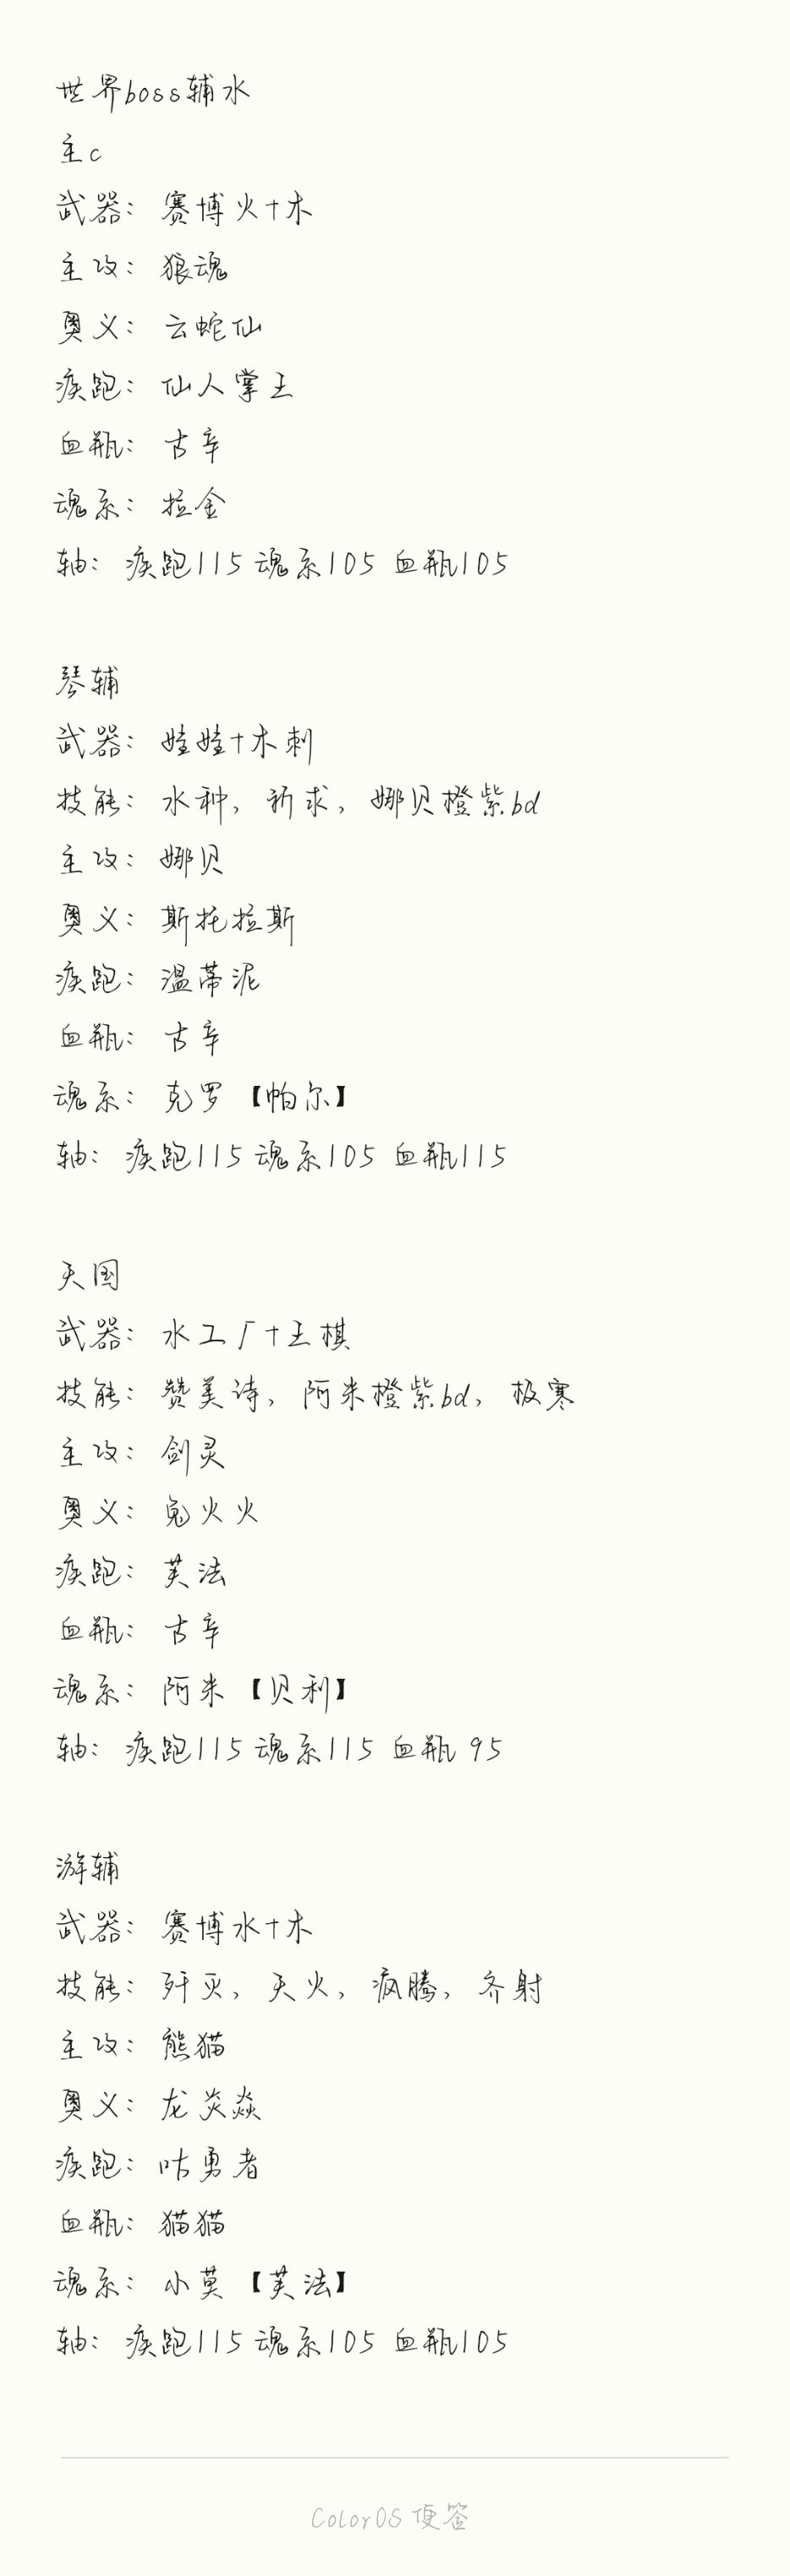 世界boss辅水
主c
武器：赛博火+木
主攻：狼魂
奥义：云蛇仙
疾跑：仙人掌王
血瓶：古辛
魂系：拉金
轴：疾跑115 魂系105 血瓶105
琴辅
武器：娃娃+木刺
技能：水种，祈求，娜贝橙紫bd
主攻：娜贝
奥义：斯托拉斯
疾跑：温蒂泥
血瓶：古辛
魂系：克罗【帕尔】
轴：疾跑115 魂系105 血瓶115
天国
武器：水工厂+王棋
技能：赞美诗，阿米橙紫bd，极寒
主攻：剑灵
奥义：兔火火
疾跑：芙法
血瓶：古辛
魂系：阿米【贝利】
轴：疾跑115 魂系115 血瓶 95
游辅
武器：赛博水+木
技能：歼灭，天火，疯腾，齐射
主攻：熊猫
奥义：龙炎焱
疾跑：咕勇者
血瓶：猫猫
魂系：小莫【芙法】
轴：疾跑115 魂系105 血瓶105
ColorOS 便签